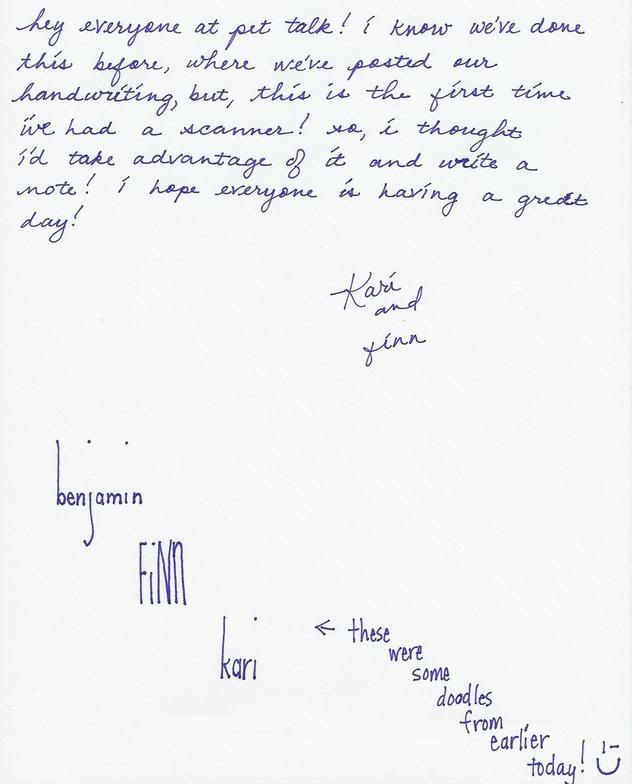 hey everyone at pet talk! i know we've done
this before, where we've posted our
handwriting, but, this is the first time
i've had a scanner! so, i thought
i'd take advantage of it and write a
note! i hope everyone is having a great
day!
Kari
and
finn
benjamin
FiNN
kari
← these
were
some
doodles
from
earlier
today!